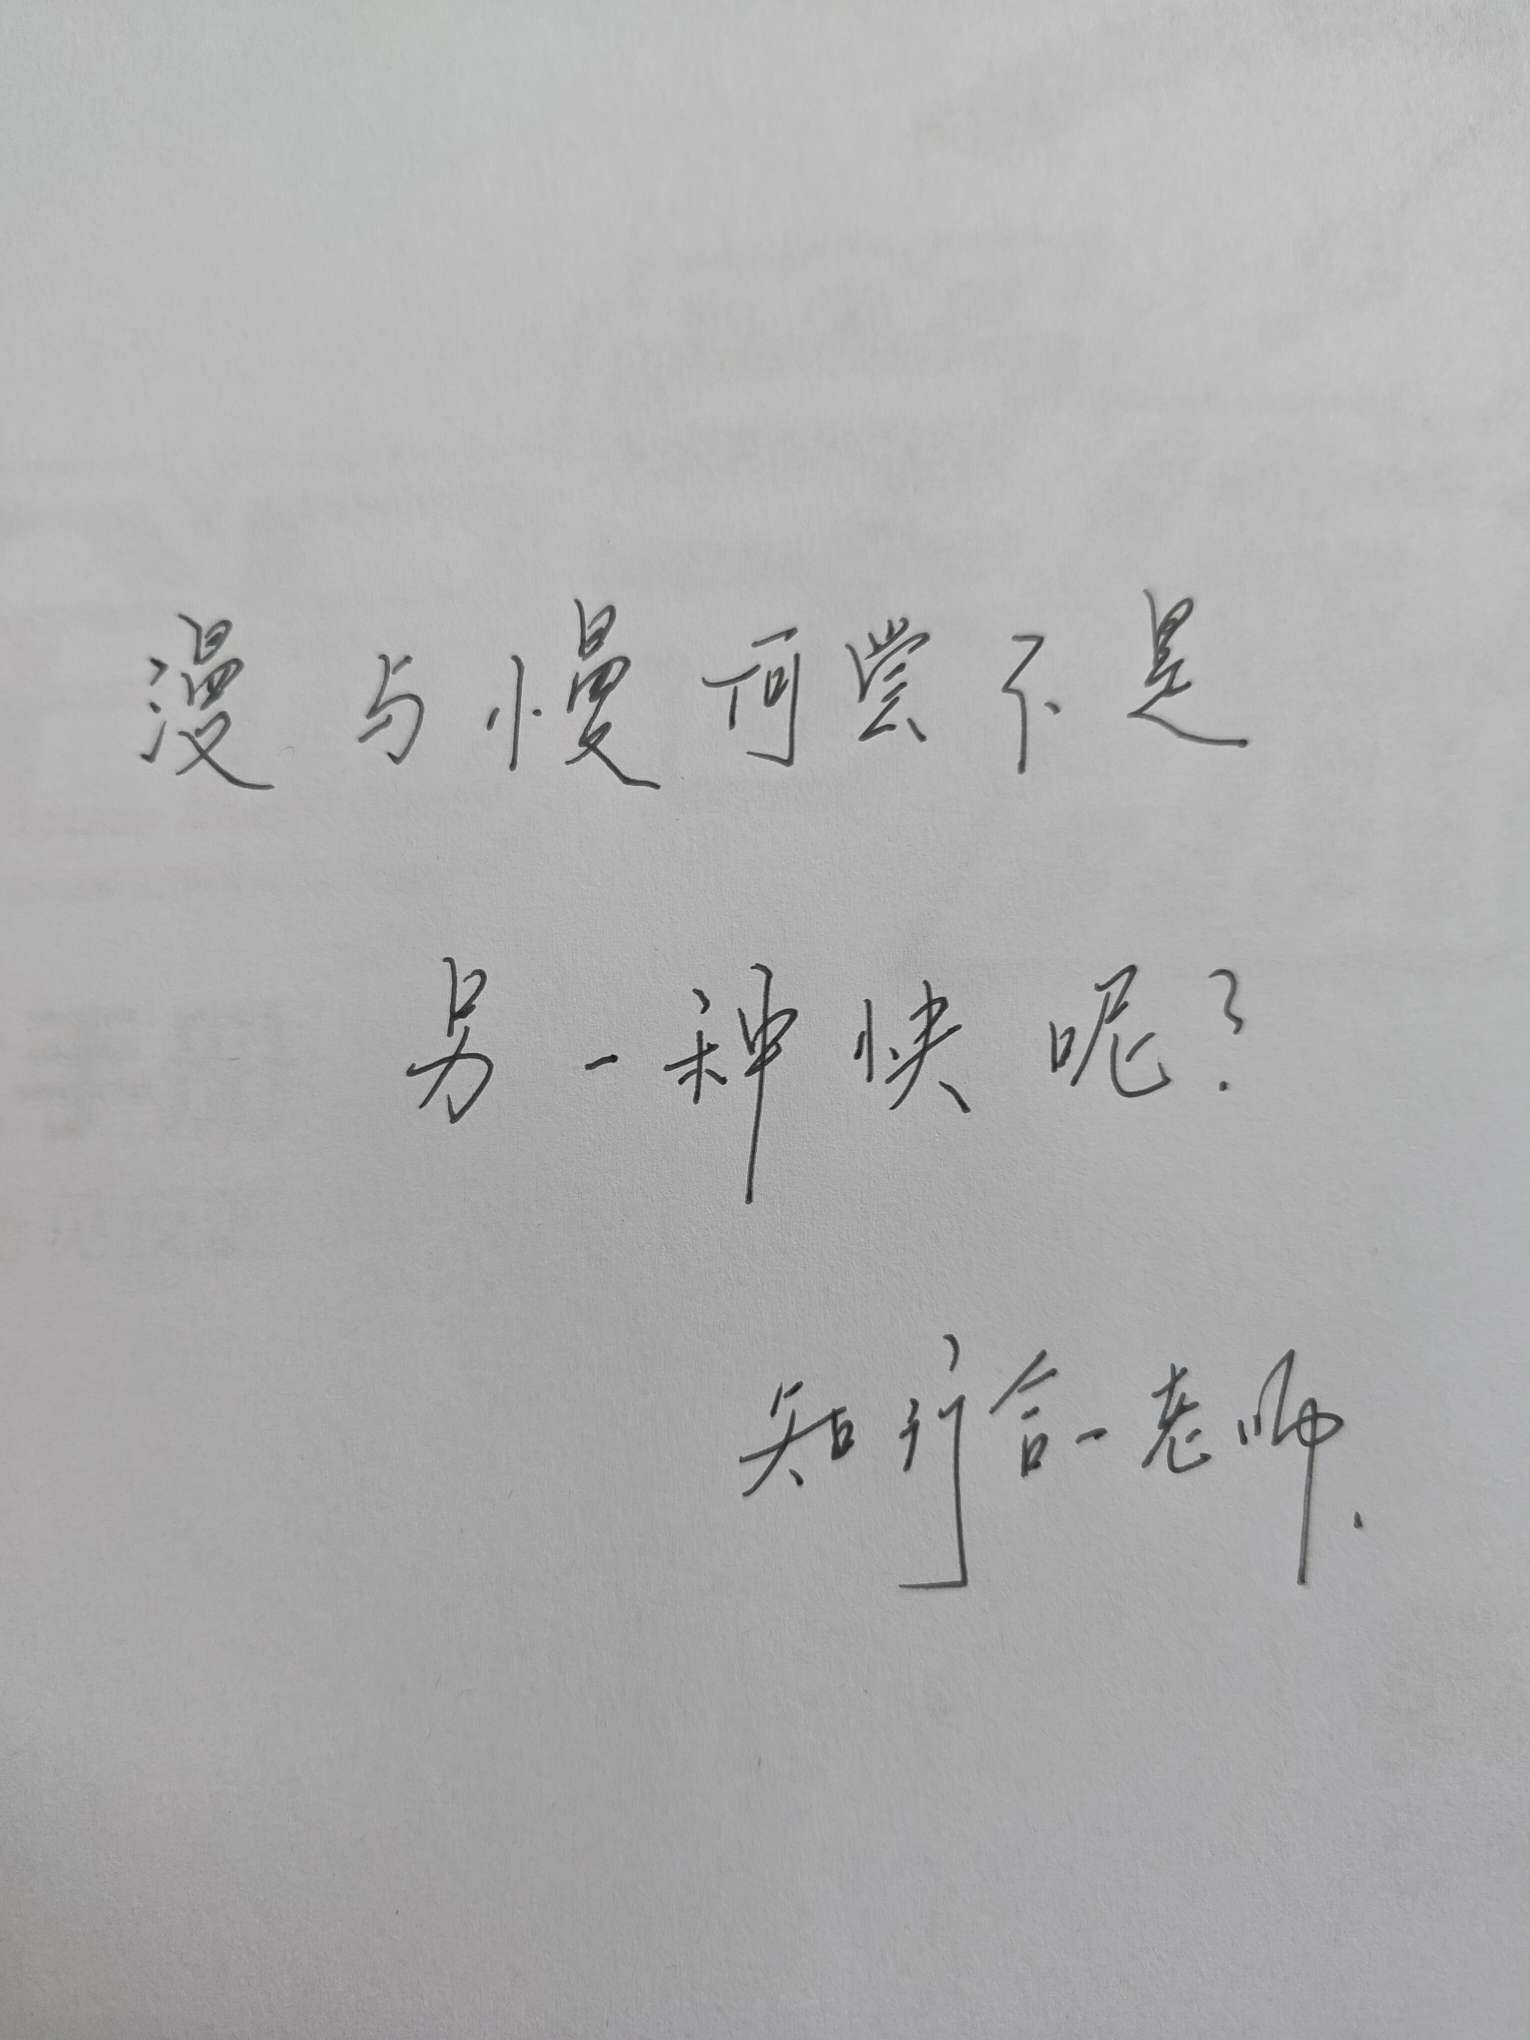 漫与慢何尝不是
另一种快呢?
知行合一老师.